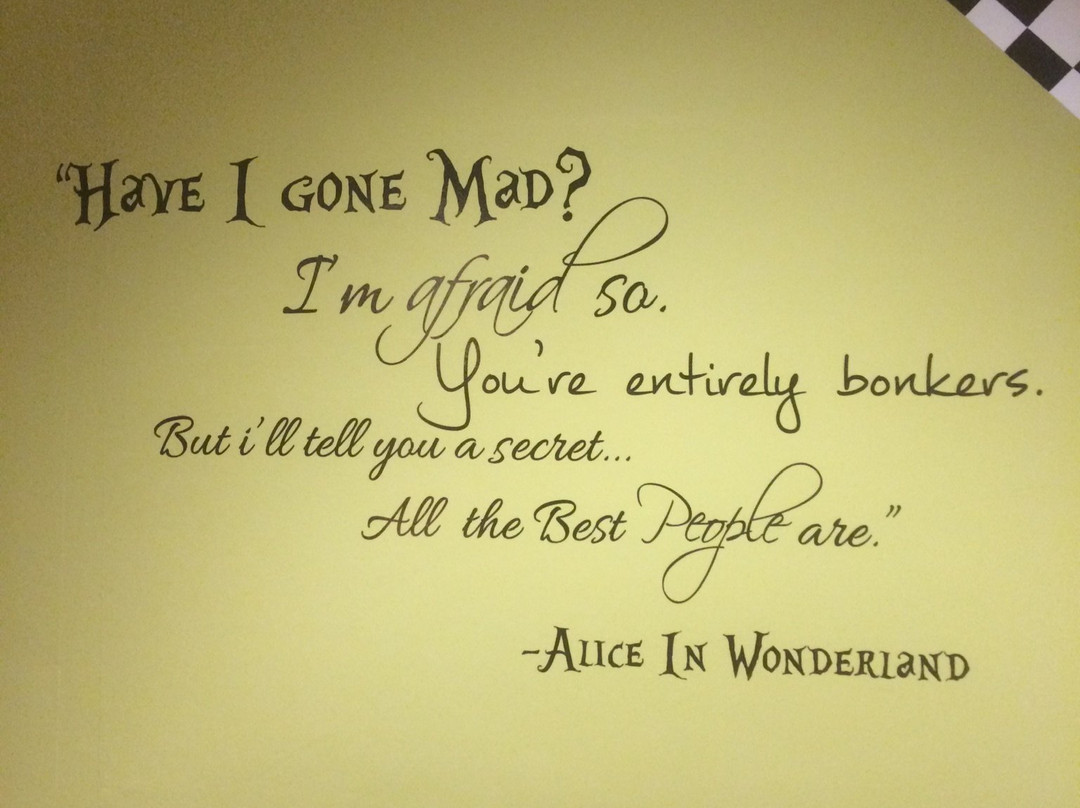 “Have I gone Mad?
I'm afraid so.
You're entirely bonkers.
But i'll tell you a secret...
All the Best People are.”
-Alice In Wonderland